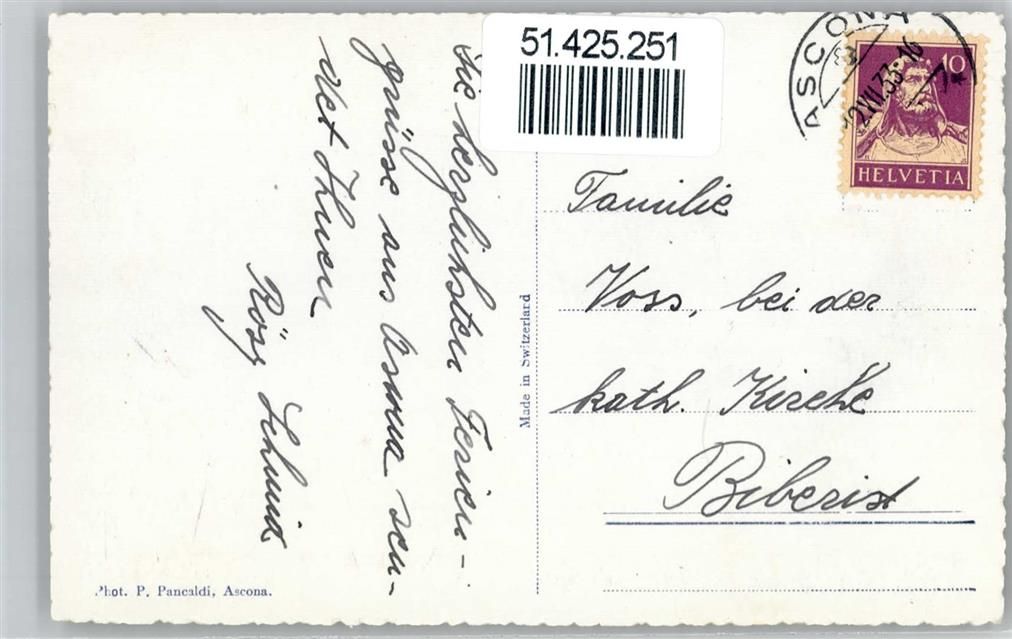 51.425.251
ASCONA
12.VII.33-16
10
HELVETIA
Die herzlichsten Ferien-
grüsse aus Ascona sen-
det Ihnen
Rösy Schmid
Familie
Voss, bei der
kath. Kirche
Biberist
Made in Switzerland
Phot. P. Pancaldi, Ascona.